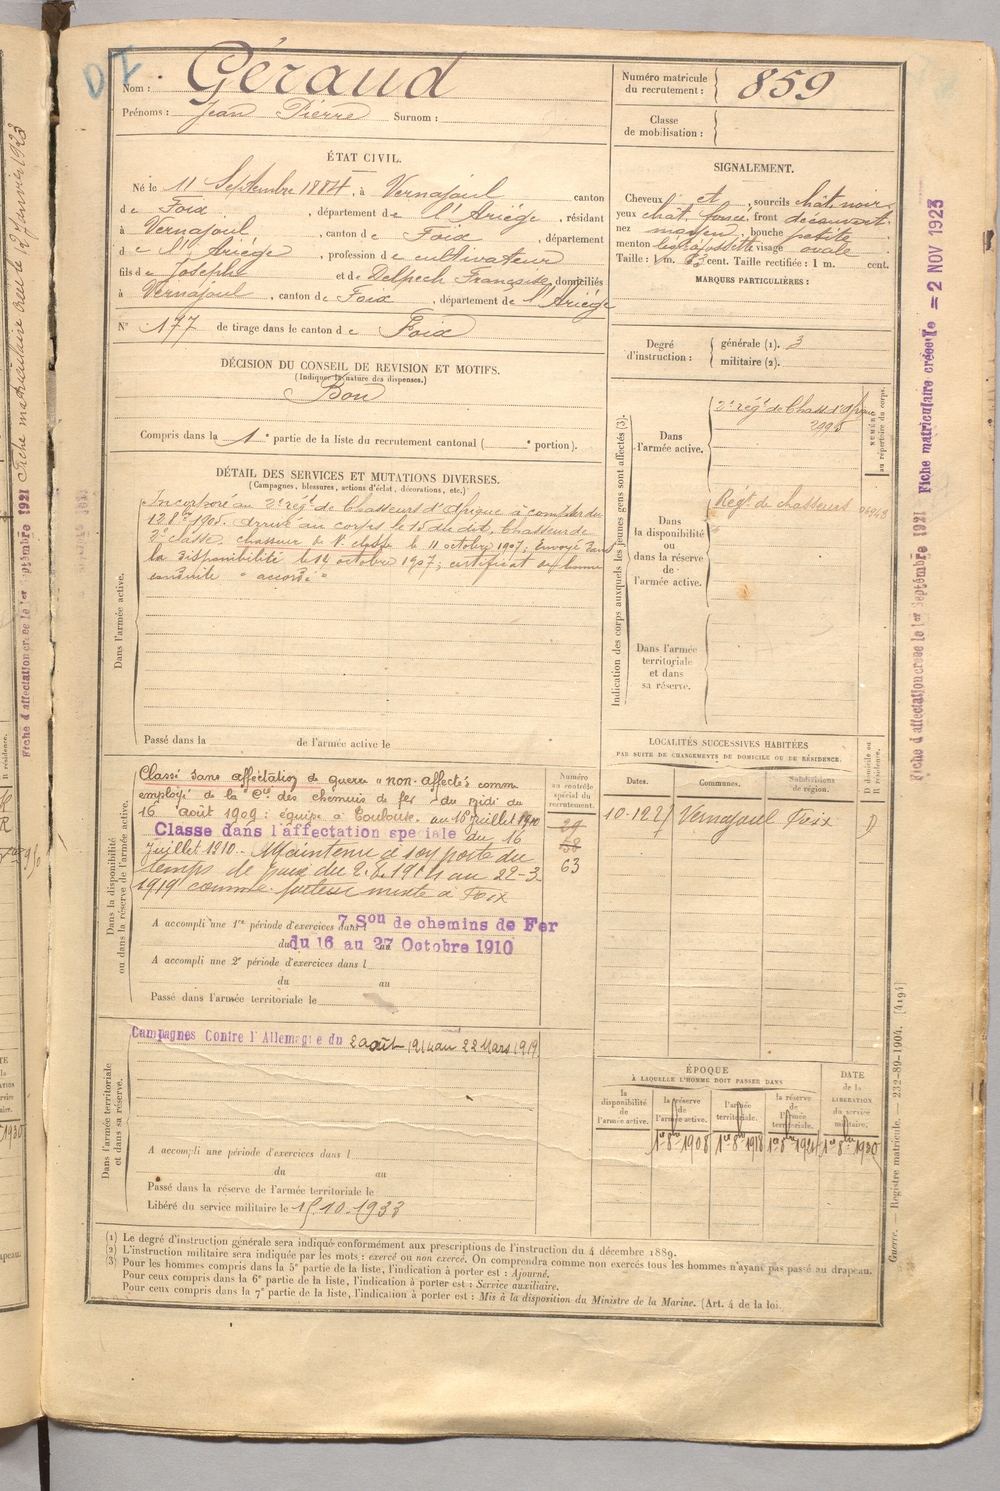 Nom : Géraud
Prénoms : Jean Pierre Surnom :
Numéro matricule du recrutement : 859
Classe de mobilisation :
ÉTAT CIVIL.
Né le 11 Septembre 1884, à Vernajoul canton
de Foix, département de l'Ariège, résidant
à Vernajoul, canton de Foix, département
de l'Ariège, profession de cultivateur
fils de Joseph et de Delpech Françoise, domiciliés
à Vernajoul, canton de Foix, département de l'Ariège
N° 177 de tirage dans le canton de Foix
SIGNALEMENT.
Cheveux et, sourcils chât. noir
yeux chât. foncé, front découvert
nez moyen, bouche petite
menton visage ovale
Taille : 1 m. 63 cent. Taille rectifiée : 1 m. cent.
MARQUES PARTICULIÈRES :
Degré d'instruction : générale (1). 3
militaire (2).
DÉCISION DU CONSEIL DE REVISION ET MOTIFS.
(Indiquer la nature des dispenses.)
Bon
Compris dans la 1e partie de la liste du recrutement cantonal ( e portion).
DÉTAIL DES SERVICES ET MUTATIONS DIVERSES.
(Campagnes, blessures, actions d'éclat, décorations, etc.)
Dans l'armée active.
Incorporé au 2e régt de Chasseurs d'Afrique à compter du
12 8bre 1905. Arrivé au corps le 15 du dit, Chasseur de
2e classe. chasseur de 1e classe le 11 octobre 1907; Envoyé dans
la disponibilité le 14 octobre 1907; certificat de bonne
conduite "accordé"
Passé dans la de l'armée active le
Indication des corps auxquels les jeunes gens sont affectés (3).
NUMÉRO au répertoire du corps.
Dans l'armée active.
2e régt de Chass. d'Afrique
Dans la disponibilité ou dans la réserve de l'armée active.
Regt de chasseurs
Dans l'armée territoriale et dans sa réserve.
Dans la disponibilité ou dans la réserve de l'armée active.
Classé sans affectation de guerre "non-affectés" comme
employé de la Cie des chemins de fer du midi du
16 août 1909 : équipe à Toulouse. au 16 juillet 1910
Classe dans l'affectation speciale du 16
Juillet 1910. Maintenu à son poste du
temps de paix du 2.8.1914 au 22-3-
1919 comme facteur mixte à Foix
Numéro au contrôle spécial du recrutement.
29
58
63
A accompli une 1re période d'exercices dans l 7 Son de chemins de Fer
du du 16 au 27 Octobre 1910
A accompli une 2e période d'exercices dans l
du au
Passé dans l'armée territoriale le
LOCALITÉS SUCCESSIVES HABITÉES
PAR SUITE DE CHANGEMENTS DE DOMICILE OU DE RÉSIDENCE.
Dates. Communes. Subdivisions de région. D domicile ou R résidence.
10.12.27 Vernajoul Foix D
Dans l'armée territoriale et dans sa réserve.
Campagnes Contre l'Allemagne du 2 août 1914 au 22 Mars 1919
A accompli une période d'exercices dans l
du au
Passé dans la réserve de l'armée territoriale le
Libéré du service militaire le 15.10.1933
ÉPOQUE
À LAQUELLE L'HOMME DOIT PASSER DANS
la disponibilité de l'armée active.
la réserve de l'armée active.
l'armée territoriale.
la réserve de l'armée territoriale.
DATE de la LIBÉRATION du service militaire.
1er 8bre 1908 1er 8bre 1918 1er 8bre 1924 1er 8bre 1930
(1) Le degré d'instruction générale sera indiqué conformément aux prescriptions de l'instruction du 4 décembre 1889.
(2) L'instruction militaire sera indiquée par les mots : exercé ou non exercé. On comprendra comme non exercés tous les hommes n'ayant pas passé au drapeau.
(3) Pour les hommes compris dans la 5e partie de la liste, l'indication à porter est : Ajourné.
Pour ceux compris dans la 6e partie de la liste, l'indication à porter est : Service auxiliaire.
Pour ceux compris dans la 7e partie de la liste, l'indication à porter est : Mis à la disposition du Ministre de la Marine. (Art. 4 de la loi.
Guerre. — Registre matricule. — 232-89-1904. [4194]
Fiche d'affectation créée le 1er Septembre 1921 Fiche matriculaire créée le = 2 NOV 1923
Fiche d'affectation créée le 1er Septembre 1921 Fiche matriculaire créée le 27 Janvier 1923